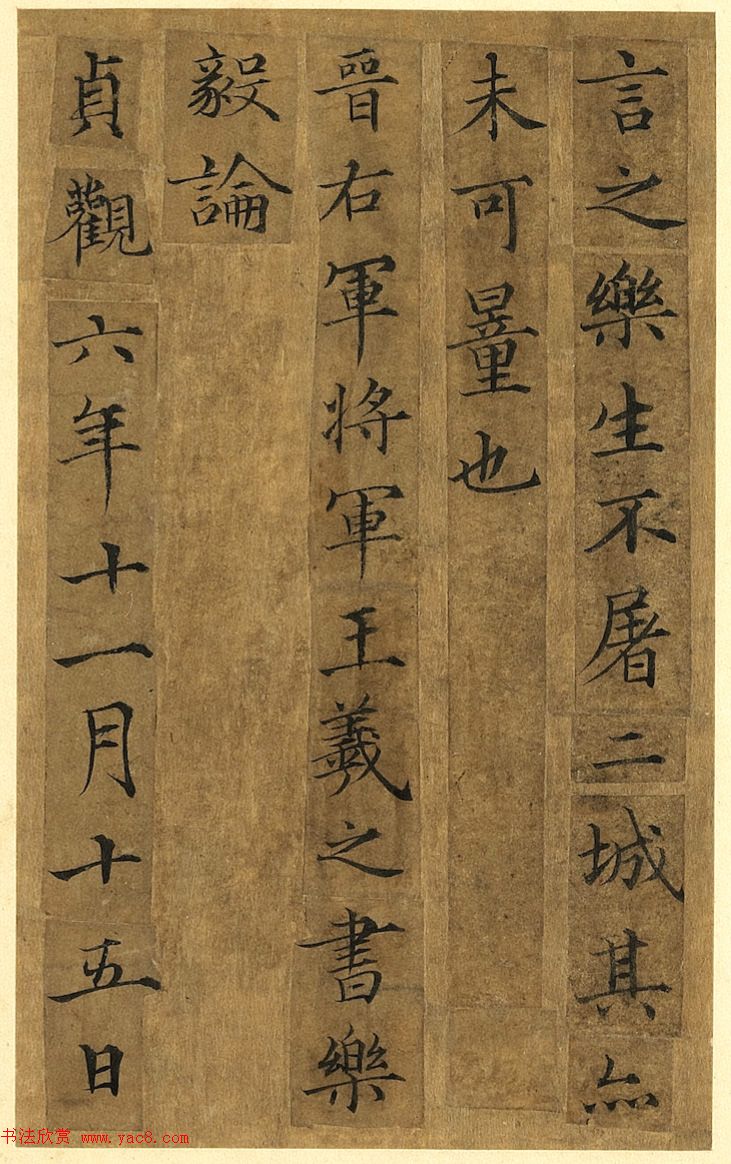 言之樂生不屠二城其亦
未可量也
晉右軍將軍王羲之書樂
毅論
貞觀六年十一月十五日
书法欣赏 www.yac8.com